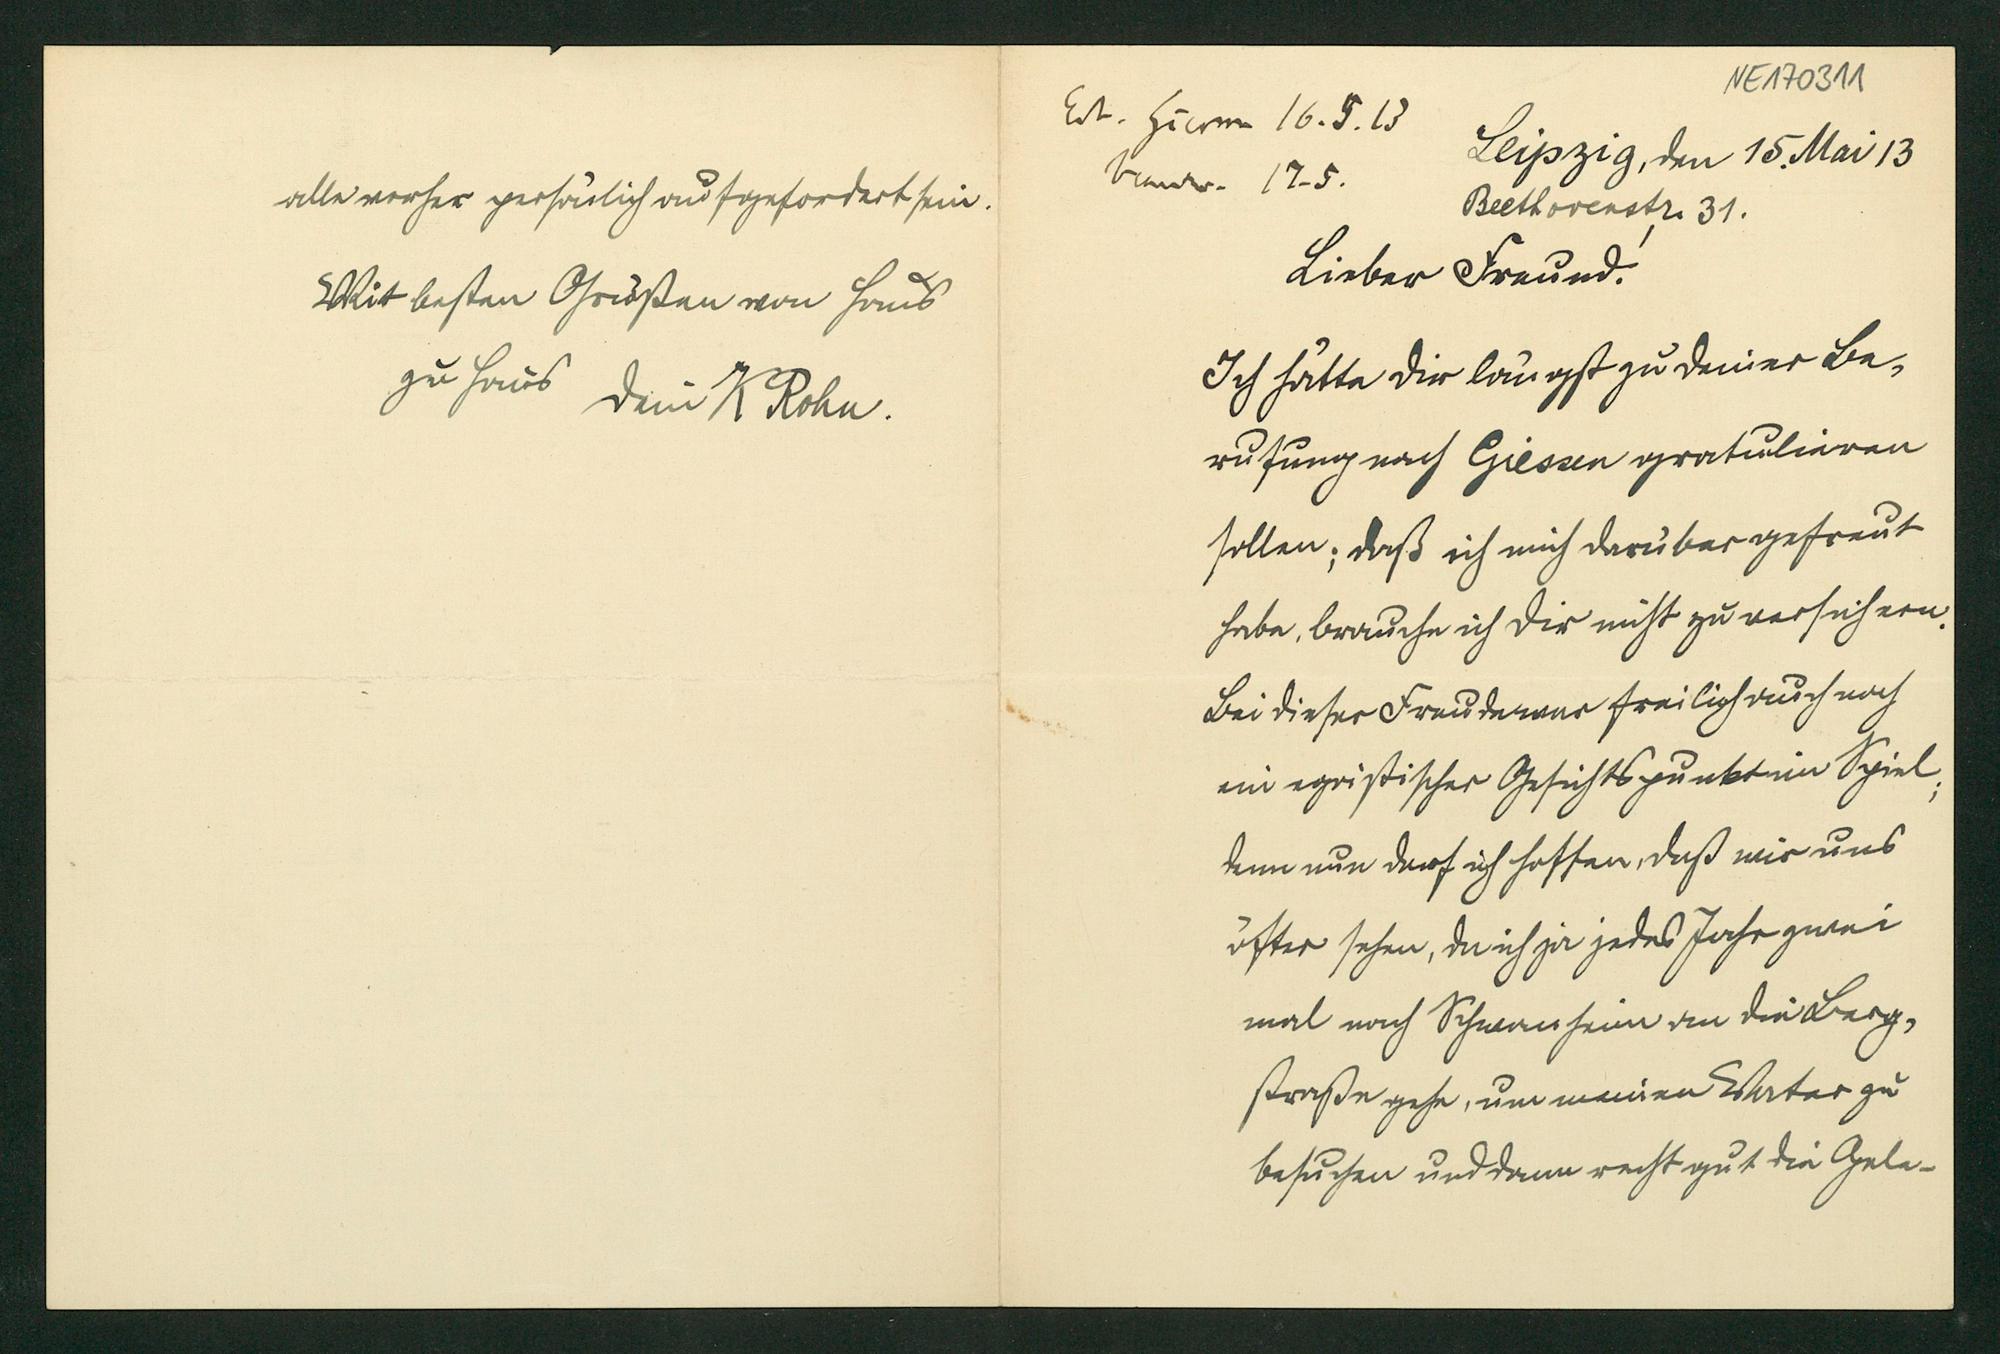 NE170311
16.5.13
17.5.
Leipzig, den 15. Mai 13
Beethovenstr. 31.
Lieber Freund!
Ich hätte Dir längst zu Deiner Be-
rufung nach Giessen gratulieren
sollen; daß ich mich darüber gefreut
habe, brauche ich Dir nicht zu versichern.
Bei dieser Freude war freilich auch noch
ein egoistischer Gesichtspunkt im Spiel;
denn nun darf ich hoffen, daß wir uns
öfter sehen, da ich ja jedes Jahr zwei
mal nach Schwanheim an die Berg-
straße gehe, um meinen Vater zu
besuchen und dann recht gut die Gele-
alle vorher persönlich aufgefordert sein.
Mit besten Grüßen von Haus
zu Haus Dein K Rohn.